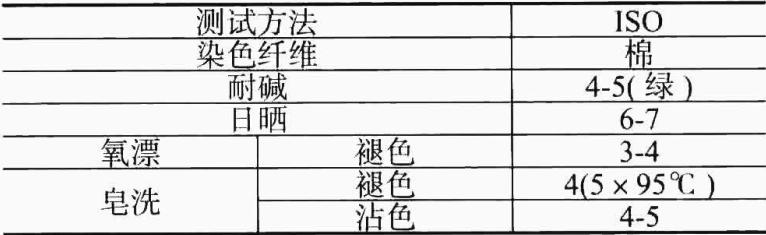 测试方法 ISO
染色纤维 棉
耐碱 4-5(绿)
日晒 6-7
氧漂 褪色 3-4
皂洗 褪色 4(5×95℃)
沾色 4-5